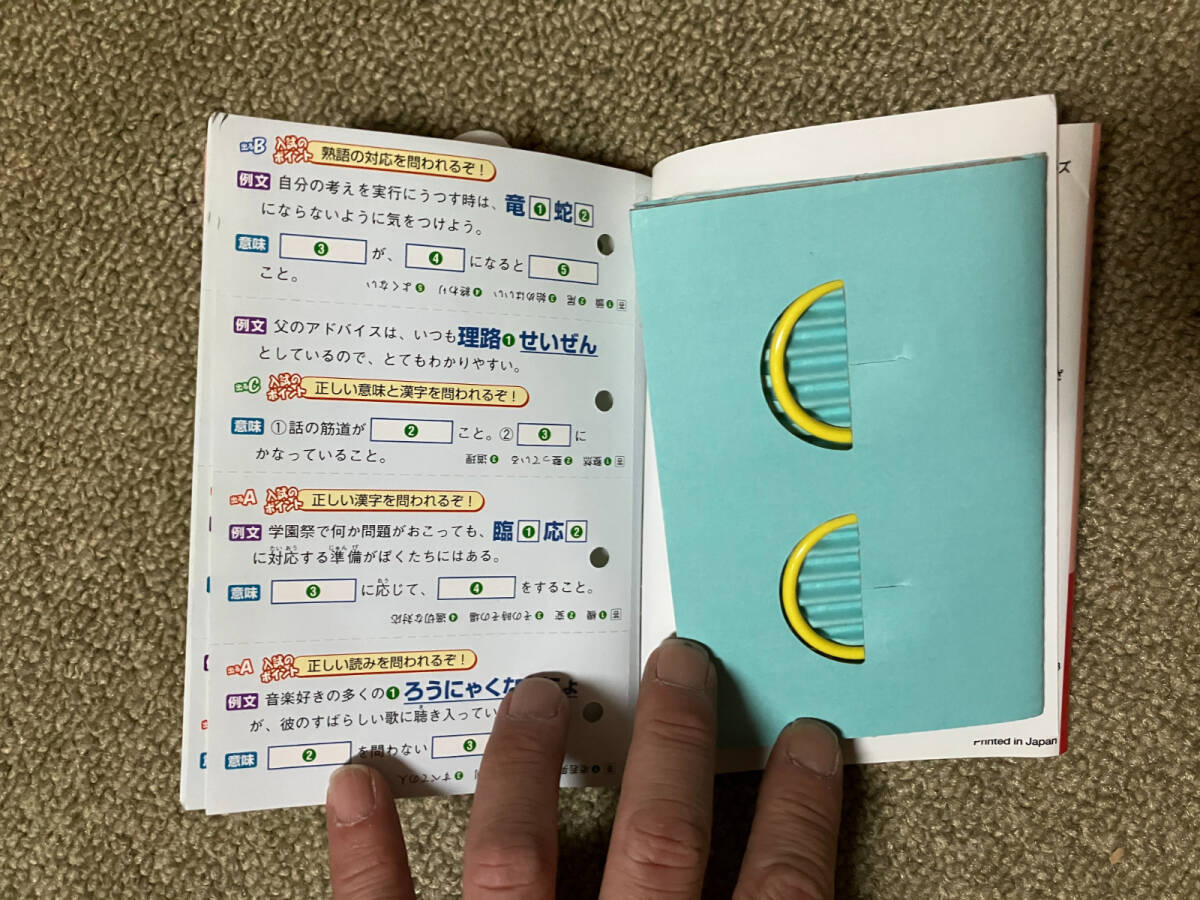 出るB 入試のポイント 熟語の対応を問われるぞ！
例文 自分の考えを実行にうつす時は、竜❶蛇❷
にならないように気をつけよう。
意味 ❸が、❹になると❺
こと。
答 ❶頭 ❷尾 ❸始めはいい ❹終わり ❺よくない
例文 父のアドバイスは、いつも理路❶せいぜん
としているので、とてもわかりやすい。
出るC 入試のポイント 正しい意味と漢字を問われるぞ！
意味 ①話の筋道が❷こと。②❸に
かなっていること。
答 ❶整然 ❷整っている ❸道理
出るA 入試のポイント 正しい漢字を問われるぞ！
例文 学園祭で何か問題がおこっても、臨❶応❷
たいおう じゅんび
に対応する準備がぼくたちにはある。
おう
意味 ❸に応じて、❹をすること。
答 ❶機 ❷変 ❸その時その場 ❹適切な対応
出るA 入試のポイント 正しい読みを問われるぞ！
例文 音楽好きの多くの❶ろうにゃくな
き
が、彼のすばらしい歌に聴き入ってい
意味 ❷を問わない❸
❸すべての人
ズ
Printed in Japan